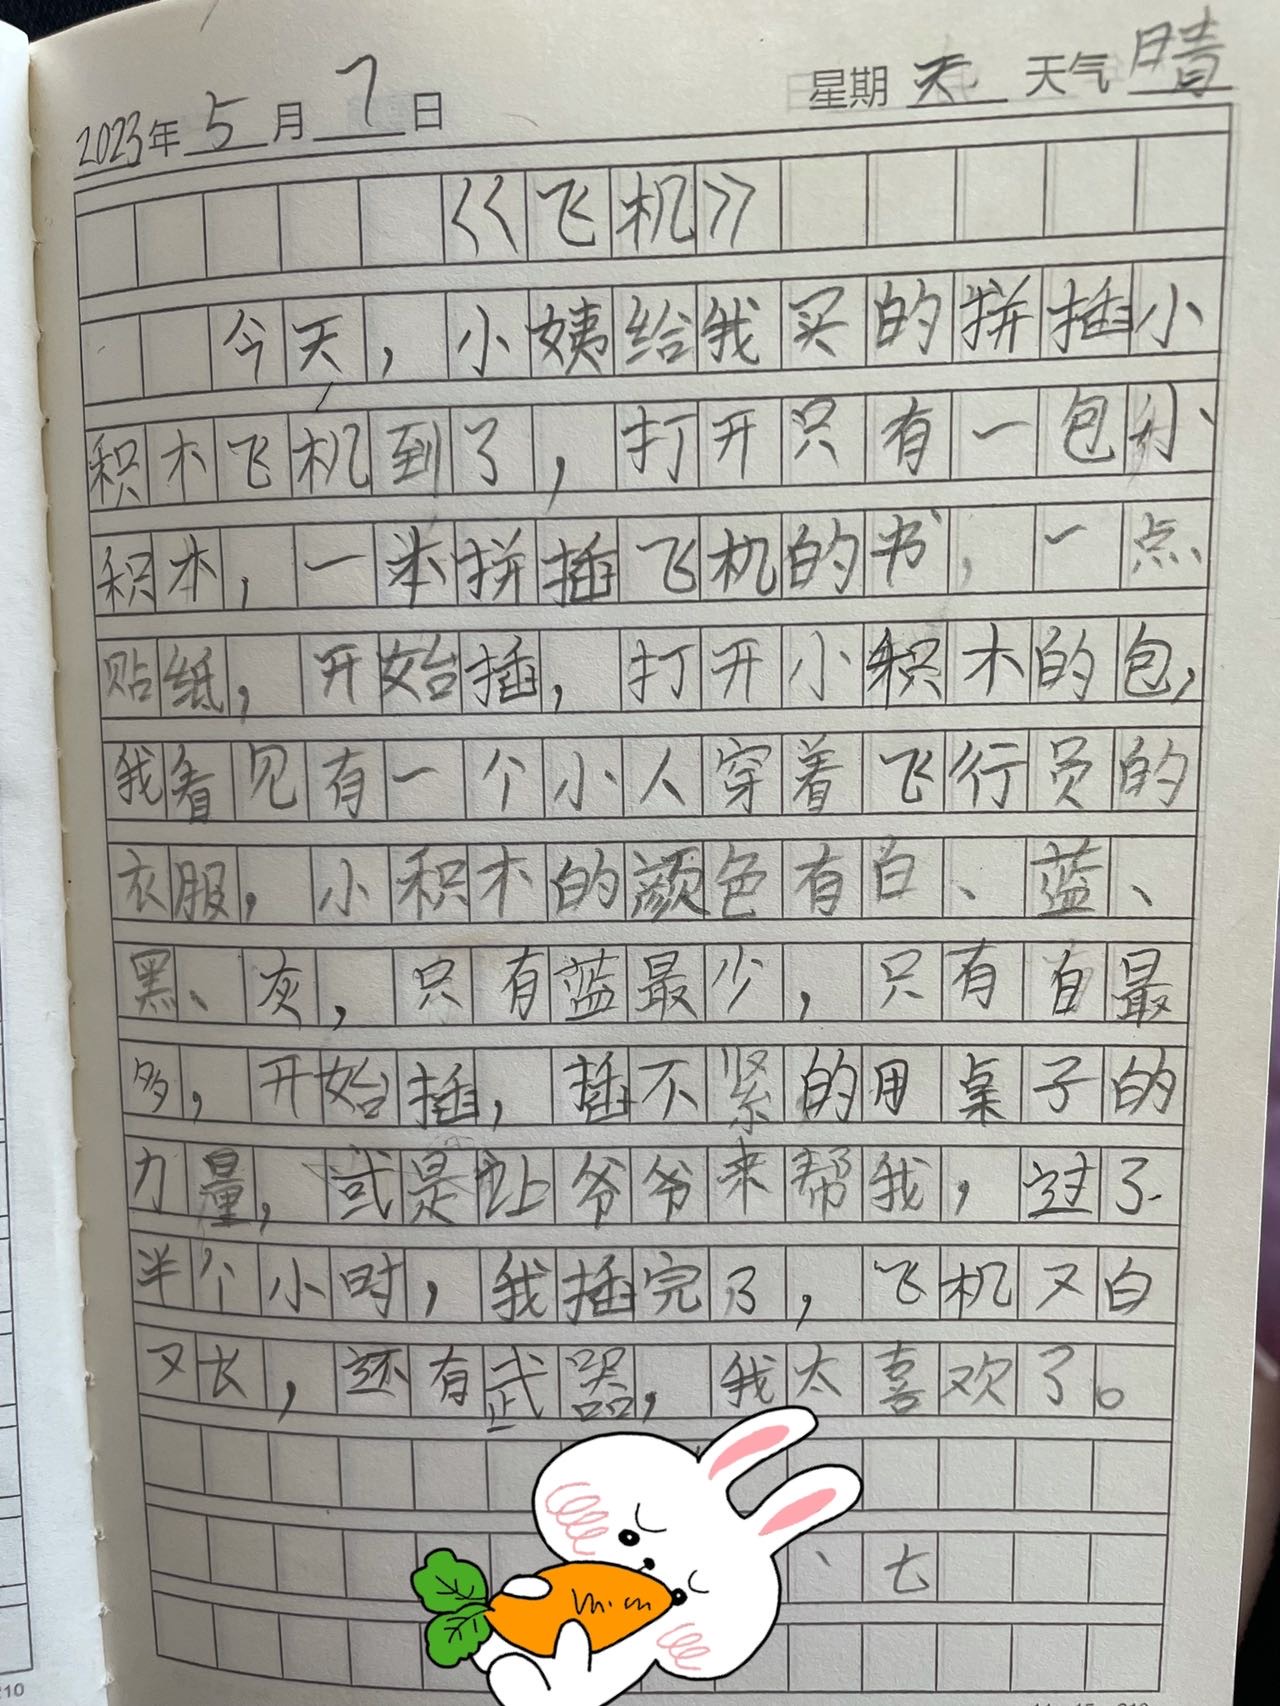 2023年5月7日 星期天 天气晴
《飞机》
今天，小姨给我买的拼插小
积木飞机到了，打开只有一包小
积木，一本拼插飞机的书，一点
贴纸，开始插，打开小积木的包，
我看见有一个小人穿着飞行员的
衣服，小积木的颜色有白、蓝、
黑、灰，只有蓝最少，只有白最
多，开始插，插不紧的用桌子的
力量，或是让爷爷来帮我，过了
半个小时，我插完了，飞机又白
又长，还有武器，我太喜欢了。
、七